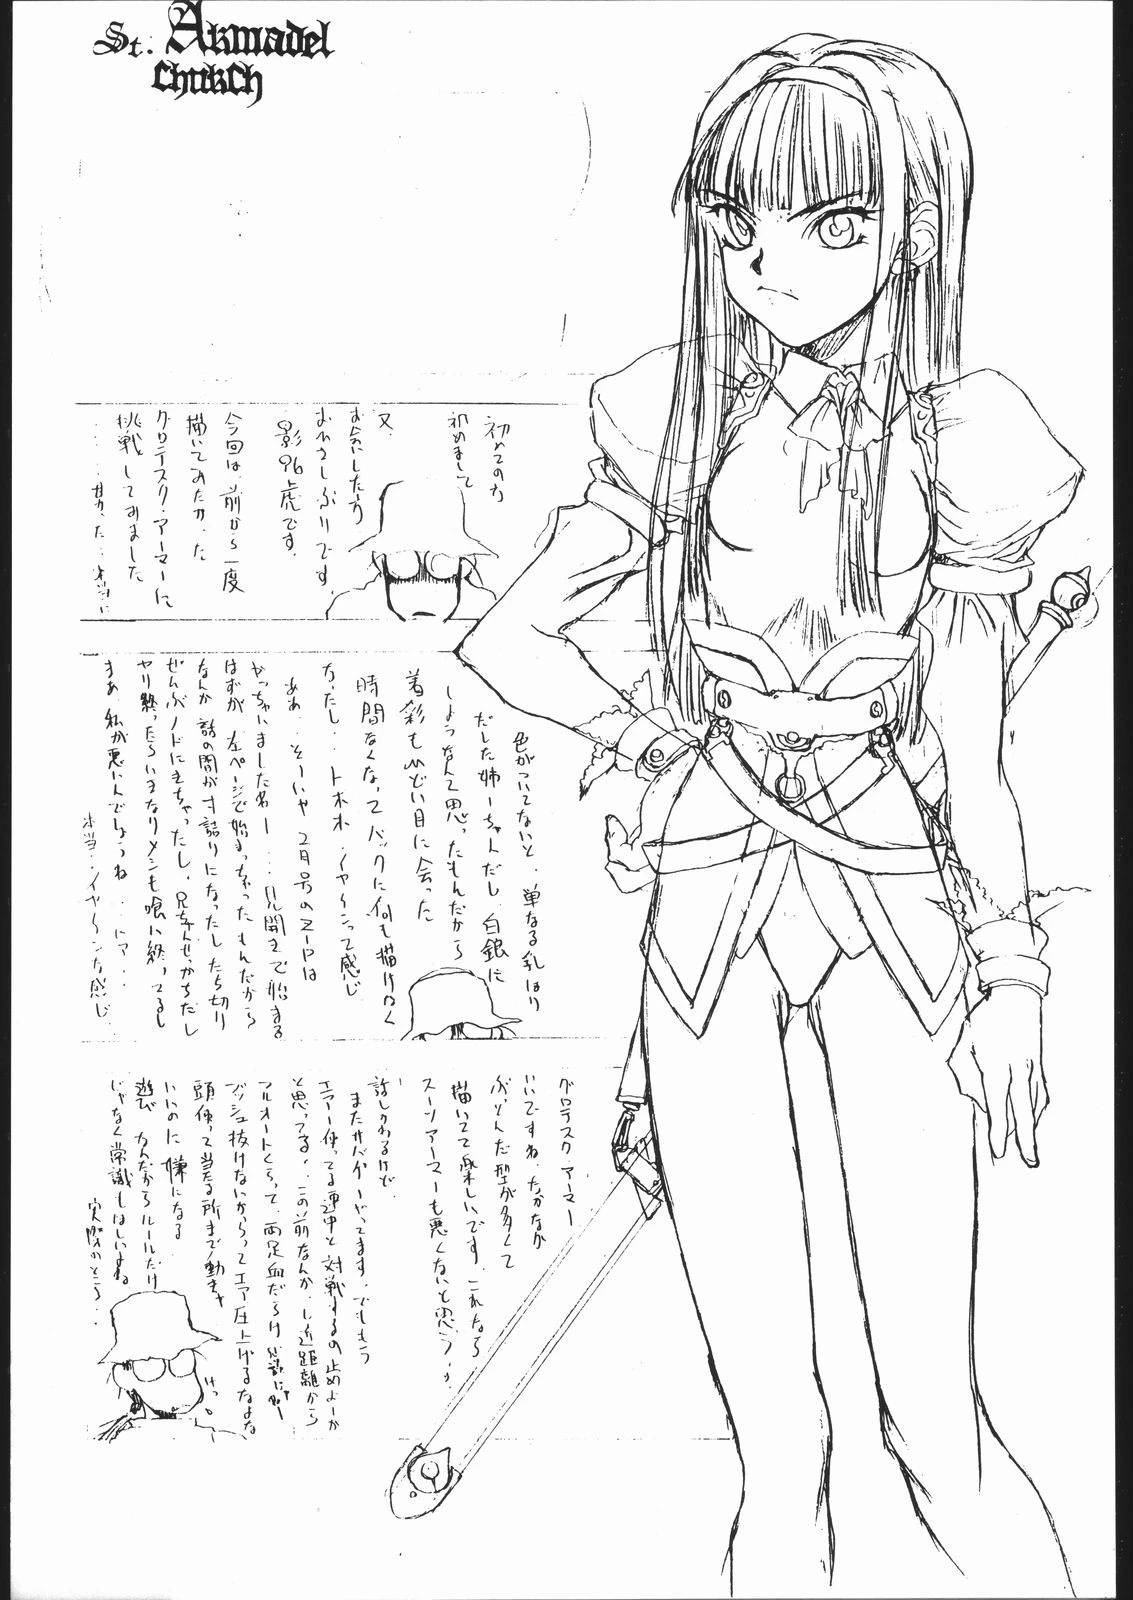 St. Armadel
Church
初めての方
初めまして
又、
お会いした方
おひさしぶりです。
影96虎です。
今回は、前から一度
描いてみたかった
グロテスク・アーマーに
挑戦してみました
色がついてないと、単なる乳はり
だした姉ーちゃんだし、白銀に
しようなんて思ったもんだから
着彩もひどい目に会った
時間なくなってバックに何も描けなく
なったし...トホホ・イヤ〜ンって感じ
ああ...そーいや2月号の
やっちゃいましたねー...見開きで始まる
はずが左ページで始まっちゃったもんだから
なんか話の間が寸詰りになったしたち切り
ぜんぶノドにきちゃったし。
ヤリ終ったらいきなりメシも喰い終ってるし
まぁ、私が悪いんでしょうね
本当、イヤ〜ンな感じ...
グロテスク・アーマー
いいですね、なかなか
ぶっとんだ型が多くて
描いてて楽しいです。これなら
スーツアーマーも悪くないと思う。
話しかわるけど、
またサバゲーやってます。でももう
エアー使ってる連中と対戦するの止めよーか
と思ってる。この前なんか、し近距離から
フルオートくらって、両足血だらけ
ブッシュ抜けないからってエア圧上げるなよな
頭使って当たる所まで動きゃ
いいのに嫌になる
遊びなんだからルールだけ
じゃなく常識もほしいよね
実際のところ...
けっ。